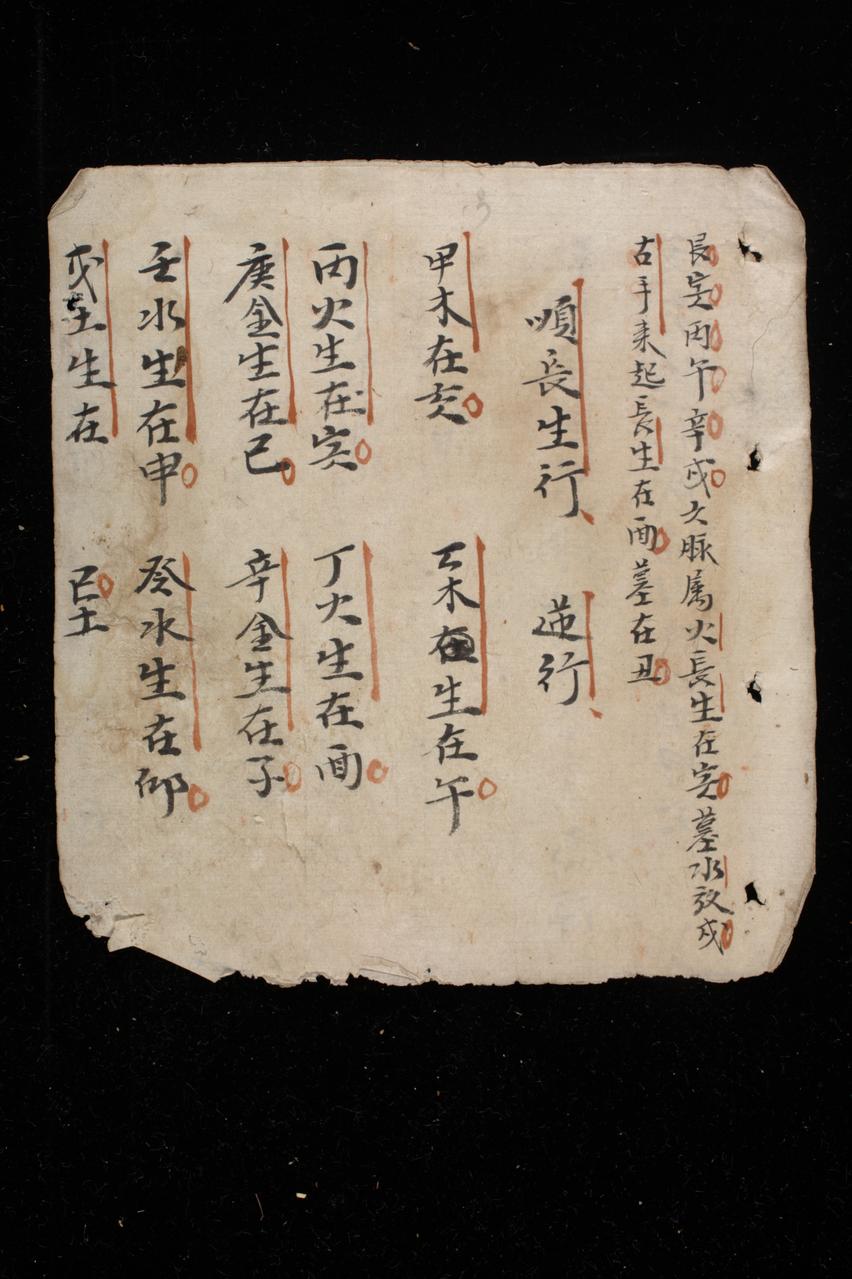 艮寅丙午辛戌六脉属火長生在寅墓水放戌
古手来起長生在酉墓在丑
順長生行 逆行
甲木在亥 乙木在生在午
丙火生在寅 丁火生在酉
庚金生在巳 辛金生在子
壬水生在申 癸水生在卯
戊土生在 巳土